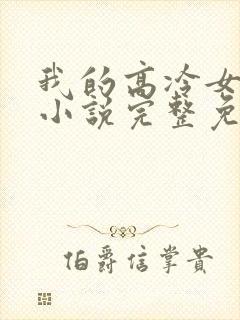 我的高冷女
小说完整免
伯爵信掌贵